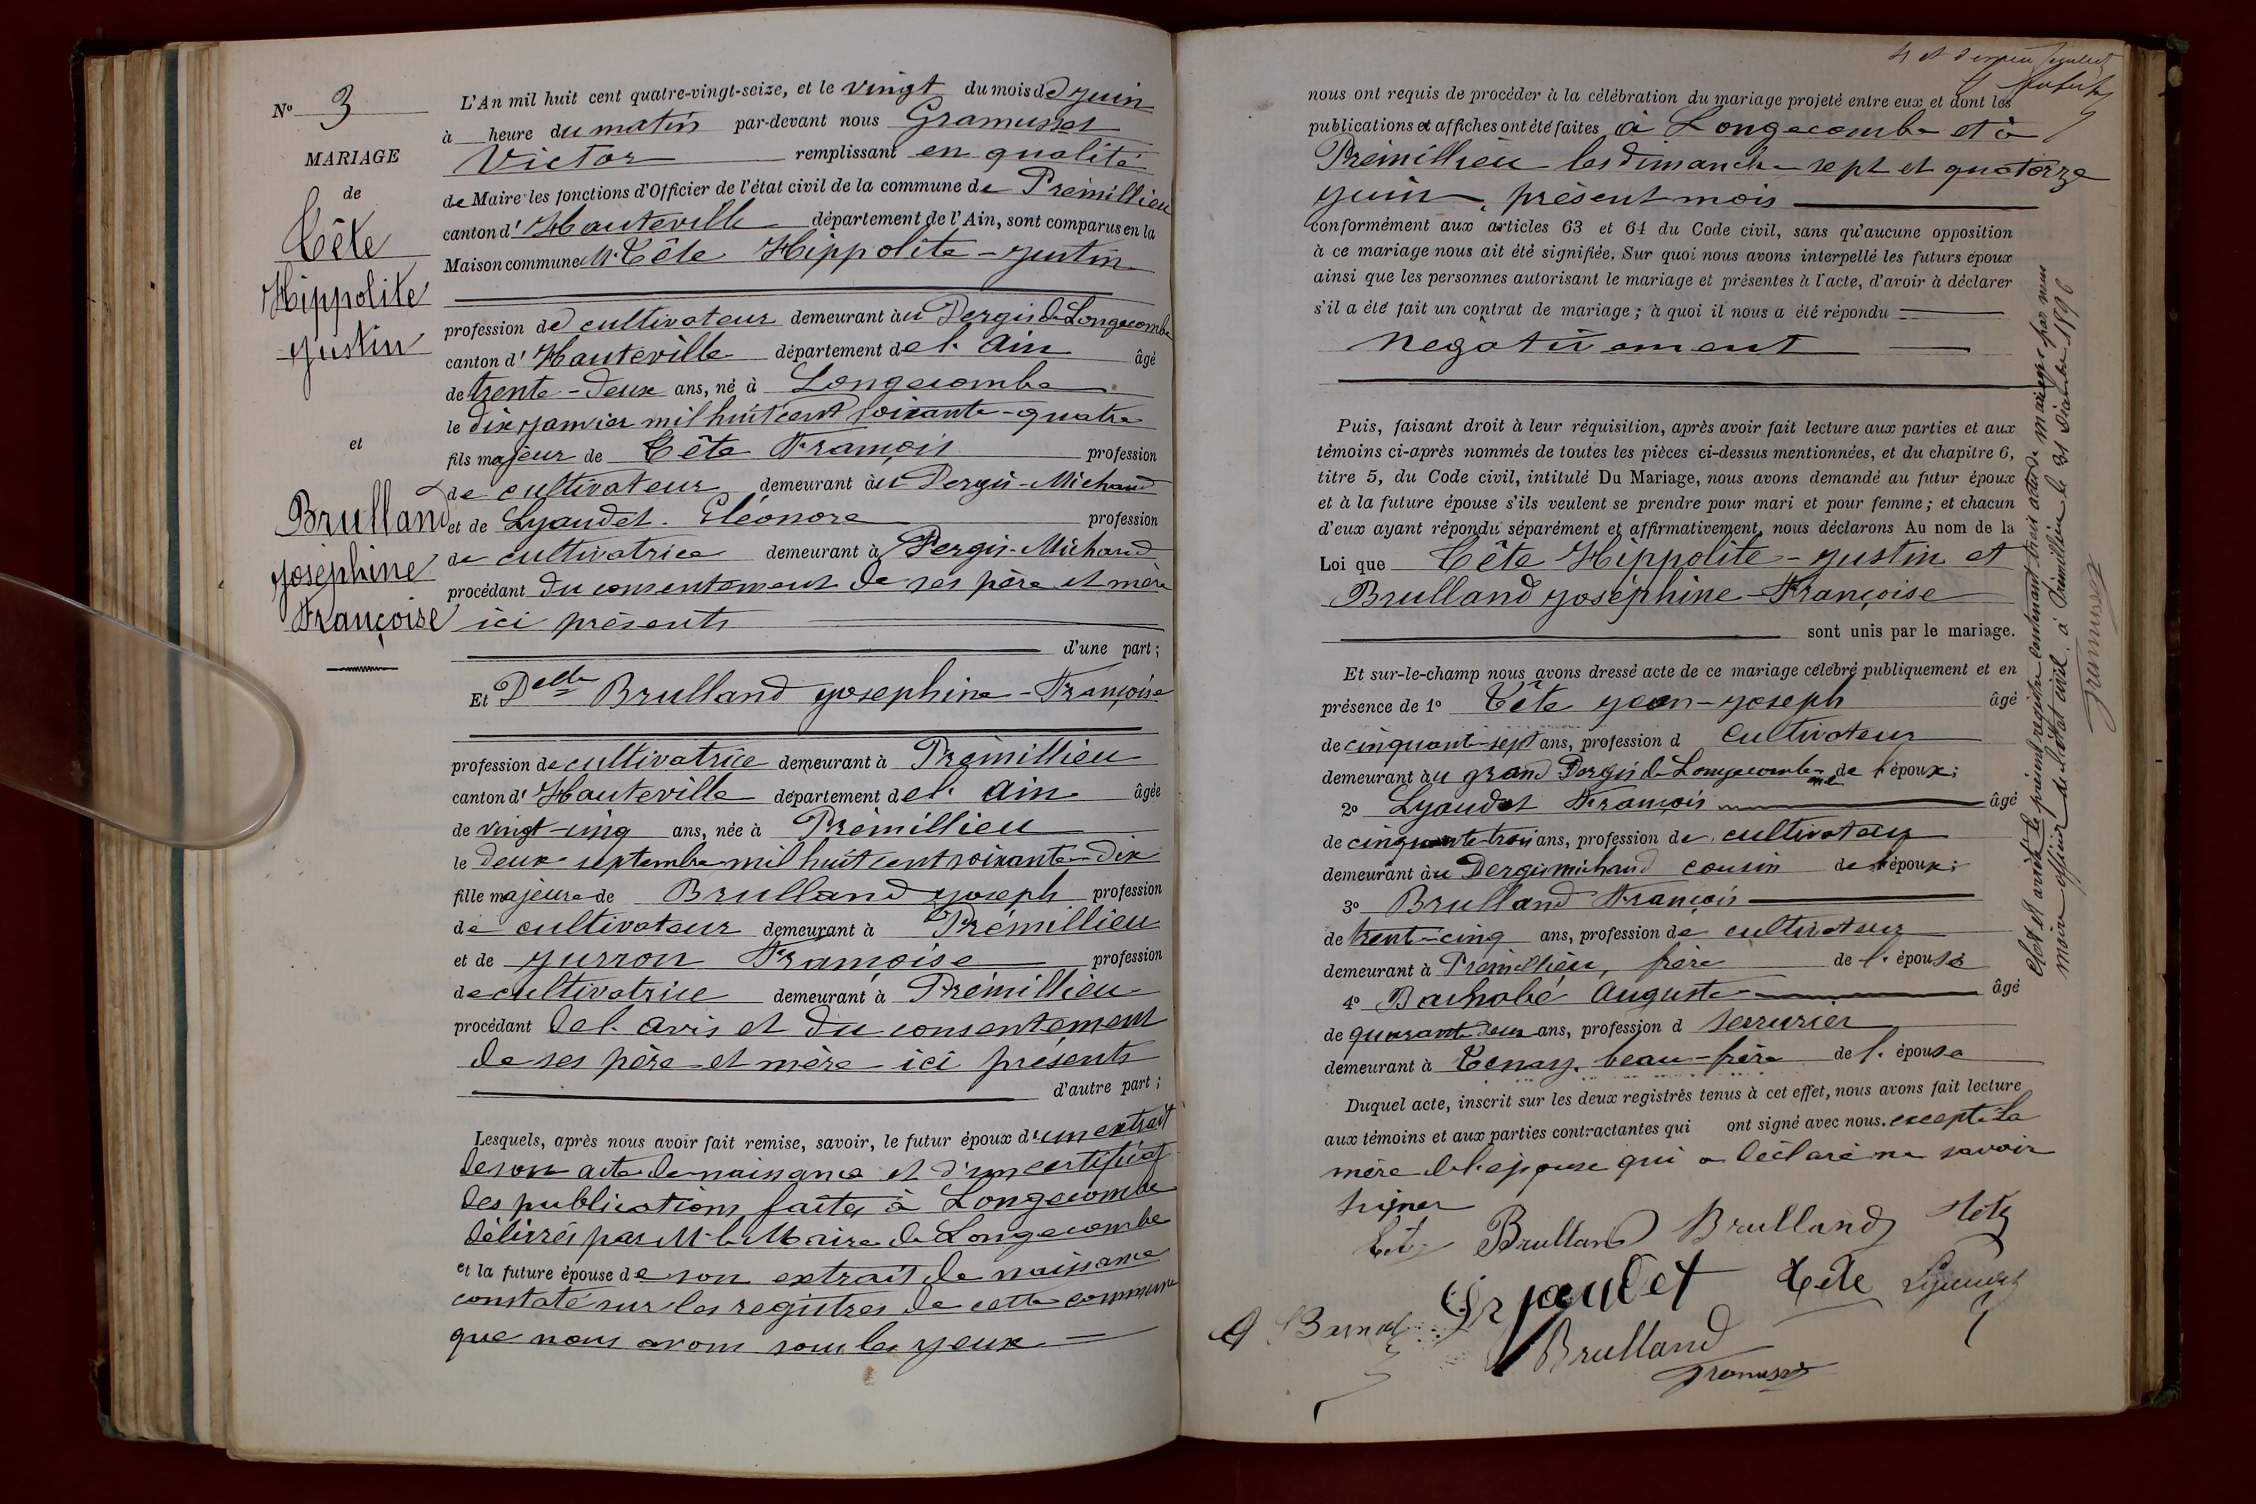 N° 3
MARIAGE
de
Tête
Hippolite
Justin
et
Brulland
Joséphine
Françoise
L'An mil huit cent quatre-vingt-seize, et le vingt du mois de juin
à heure du matin par-devant nous Gramusset
Victor remplissant en qualité
de Maire les fonctions d'Officier de l'état civil de la commune de Prémillieu
canton d'Hauteville département de l'Ain, sont comparus en la
Maison commune Mr Tête Hippolite-Justin
profession de cultivateur demeurant au Pergis de Longecombe
canton d'Hauteville département de l'Ain âgé
de trente-deux ans, né à Longecombe
le dix janvier mil huit cent soixante-quatre
fils majeur de Tête François profession
de cultivateur demeurant au Pergis-Michaud
et de Lyaudet Eléonore profession
de cultivatrice demeurant à Pergis-Michaud
procédant du consentement de ses père et mère
ici présents
d'une part;
Et Delle Brulland Josephine-Françoise
profession de cultivatrice demeurant à Prémillieu
canton d'Hauteville département de l'Ain âgée
de vingt-cinq ans, née à Prémillieu
le deux septembre mil huit cent soixante-dix
fille majeure de Brulland Joseph profession
de cultivateur demeurant à Prémillieu
et de Jurron Françoise profession
de cultivatrice demeurant à Prémillieu
procédant de l'avis et du consentement
de ses père et mère ici présents
d'autre part;
Lesquels, après nous avoir fait remise, savoir, le futur époux d'un extrait
de son acte de naissance et d'un certificat
des publications faites à Longecombe
délivrés par Mr le Maire de Longecombe
et la future épouse de son extrait de naissance
constaté sur les registres de cette commune
que nous avons sous les yeux
nous ont requis de procéder à la célébration du mariage projeté entre eux et dont les
publications et affiches ont été faites à Longecombe et à
Prémillieu les dimanche sept et quatorze
juin, présent mois
conformément aux articles 63 et 64 du Code civil, sans qu'aucune opposition
à ce mariage nous ait été signifiée. Sur quoi nous avons interpellé les futurs époux
ainsi que les personnes autorisant le mariage et présentes à l'acte, d'avoir à déclarer
s'il a été fait un contrat de mariage; à quoi il nous a été répondu
Negativement
Puis, faisant droit à leur réquisition, après avoir fait lecture aux parties et aux
témoins ci-après nommés de toutes les pièces ci-dessus mentionnées, et du chapitre 6,
titre 5, du Code civil, intitulé Du Mariage, nous avons demandé au futur époux
et à la future épouse s'ils veulent se prendre pour mari et pour femme; et chacun
d'eux ayant répondu séparément et affirmativement, nous déclarons Au nom de la
Loi que Tête Hippolite-Justin et
Brulland Joséphine-Françoise
sont unis par le mariage.
Et sur-le-champ nous avons dressé acte de ce mariage célébré publiquement et en
présence de 1° Tête Jean-Joseph âgé
de cinquante-sept ans, profession d cultivateur
demeurant au grand Pergis de Longecombe de l'époux;
2° Lyaudet François âgé
de cinquante-trois ans, profession de cultivateur
demeurant au Pergis michaud cousin de l'époux;
3° Brulland François
de trente-cinq ans, profession de cultivateur
demeurant à Prémillieu, frère de l'épouse
4° Barnabé Auguste âgé
de quarante-deux ans, profession d serrurier
demeurant à Tenay, beau-frère de l'épouse
Duquel acte, inscrit sur les deux registres tenus à cet effet, nous avons fait lecture
aux témoins et aux parties contractantes qui ont signé avec nous. excepté la
mère de l'épouse qui a déclaré ne savoir
signer
Brulland Brulland Tête
Lyaudet Tête Lyaudet
Brulland
Gramusset
Clos et arrêté le présent registre contenant trois actes de mariage par nous
maire officier de l'état civil à Prémillieu le 31 décembre 1896
Gramusset